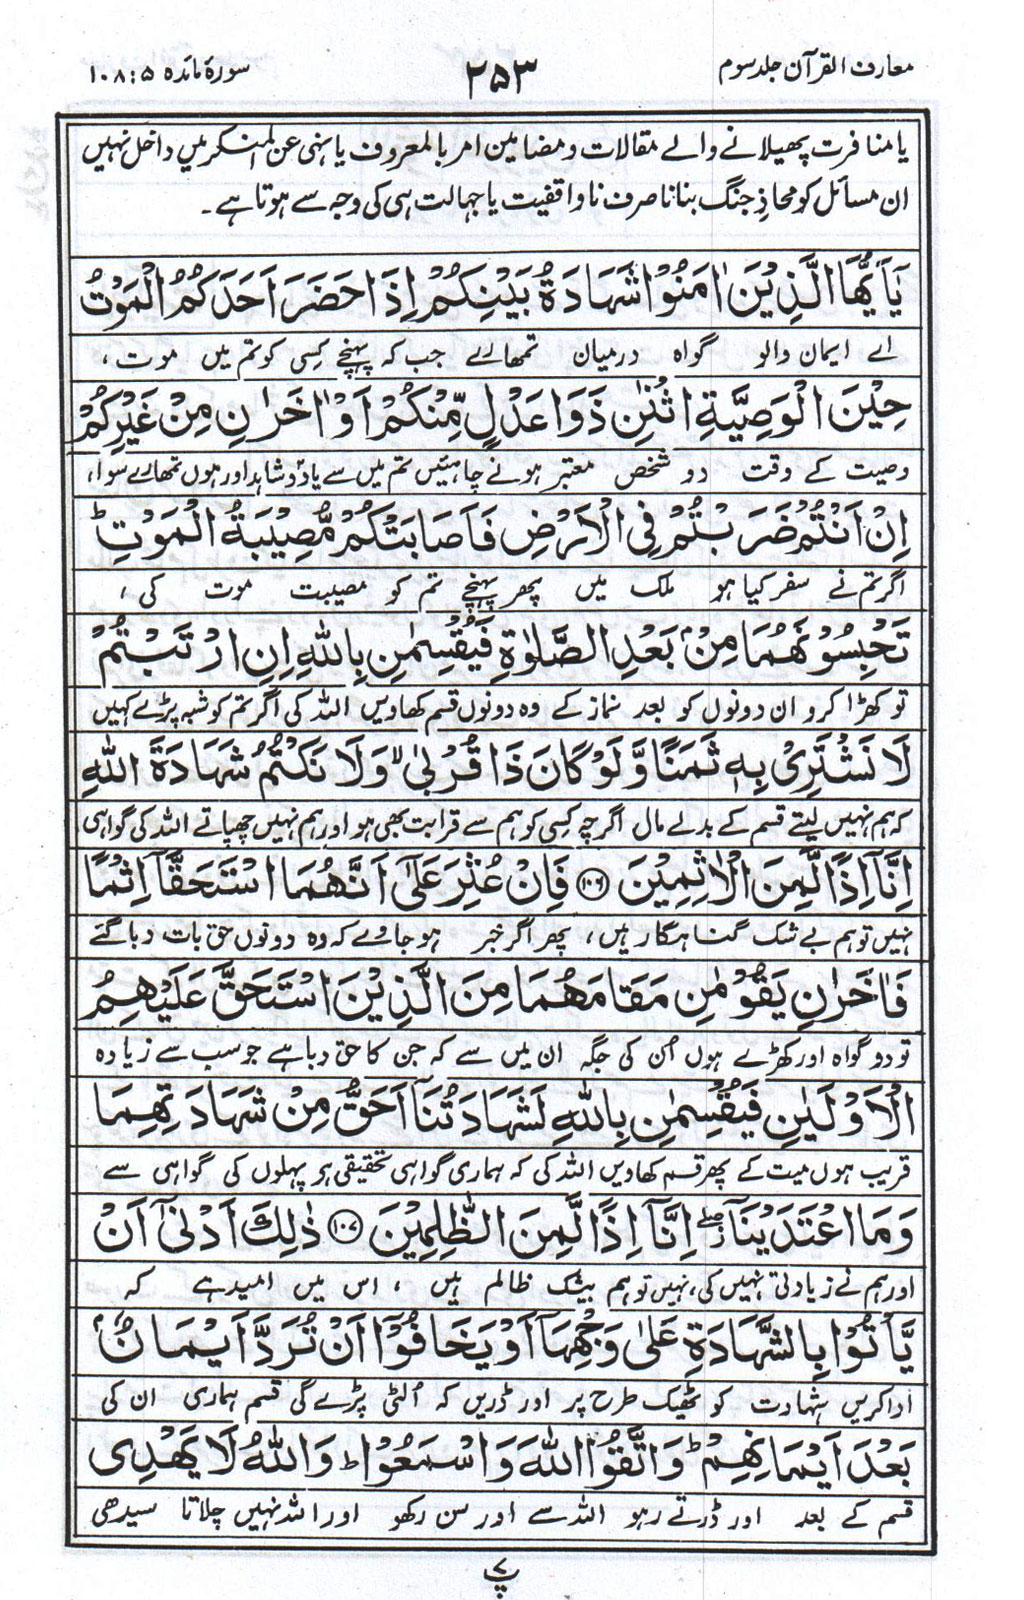 معارف القرآن جلد سوم
۲۵۳
سورۂ مائدہ ۵ : ۱۰۸
یا منافرت پھیلانے والے مقالات و مضامین امر بالمعروف یا نہی عن المنکر میں داخل نہیں
ان مسائل کو محاذِ جنگ بنانا صرف ناواقفیت یا جہالت ہی کی وجہ سے ہوتا ہے۔
يٰٓاَيُّهَا الَّذِيْنَ اٰمَنُوْا شَهَادَةُ بَيْنِكُمْ اِذَا حَضَرَ اَحَدَكُمُ الْمَوْتُ
اے ایمان والو گواہ درمیان تمھارے جب کہ پہنچے کسی کو تم میں موت ،
حِيْنَ الْوَصِيَّةِ اثْنٰنِ ذَوَا عَدْلٍ مِّنْكُمْ اَوْ اٰخَرٰنِ مِنْ غَيْرِكُمْ
وصیت کے وقت دو شخص معتبر ہونے چاہئیں تم میں سے یا دو شاہد اور ہوں تمھارے سوا ،
اِنْ اَنْتُمْ ضَرَبْتُمْ فِي الْاَرْضِ فَاَصَابَتْكُمْ مُّصِيْبَةُ الْمَوْتِ ؕ
اگر تم نے سفر کیا ہو ملک میں پھر پہنچے تم کو مصیبت موت کی ،
تَحْبِسُوْنَهُمَا مِنْۢ بَعْدِ الصَّلٰوةِ فَيُقْسِمٰنِ بِاللّٰهِ اِنِ ارْتَبْتُمْ
تو کھڑا کرو ان دونوں کو بعد نماز کے وہ دونوں قسم کھاویں اللہ کی اگر تم کو شبہ پڑے کہیں
لَا نَشْتَرِيْ بِهٖ ثَمَنًا وَّلَوْ كَانَ ذَا قُرْبٰى ۙ وَلَا نَكْتُمُ شَهَادَةَ اللّٰهِ
کہ ہم نہیں لیتے قسم کے بدلے مال اگرچہ کسی کو ہم سے قرابت بھی ہو اور ہم نہیں چھپاتے اللہ کی گواہی
اِنَّآ اِذًا لَّمِنَ الْاٰثِمِيْنَ ﴿۱۰۶﴾ فَاِنْ عُثِرَ عَلٰٓى اَنَّهُمَا اسْتَحَقَّآ اِثْمًا
نہیں تو ہم بے شک گناہگار ہیں ، پھر اگر خبر ہو جاوے کہ وہ دونوں حق بات دبا گئے
فَاٰخَرٰنِ يَقُوْمٰنِ مَقَامَهُمَا مِنَ الَّذِيْنَ اسْتَحَقَّ عَلَيْهِمُ
تو دو گواہ اور کھڑے ہوں اُن کی جگہ ان میں سے کہ جن کا حق دبا ہے جو سب سے زیادہ
الْاَوْلَيٰنِ فَيُقْسِمٰنِ بِاللّٰهِ لَشَهَادَتُنَآ اَحَقُّ مِنْ شَهَادَتِهِمَا
قریب ہوں میت کے پھر قسم کھاویں اللہ کی کہ ہماری گواہی تحقیقی ہو پہلوں کی گواہی سے
وَمَا اعْتَدَيْنَآ ۖ اِنَّآ اِذًا لَّمِنَ الظّٰلِمِيْنَ ﴿۱۰۷﴾ ذٰلِكَ اَدْنٰٓى اَنْ
اور ہم نے زیادتی نہیں کی، نہیں تو ہم بیشک ظالم ہیں ، اس میں امید ہے کہ
يَّاْتُوْا بِالشَّهَادَةِ عَلٰى وَجْهِهَآ اَوْ يَخَافُوْٓا اَنْ تُرَدَّ اَيْمَانٌۢ
ادا کریں شہادت کو ٹھیک طرح پر اور ڈریں کہ اُلٹی پڑے گی قسم ہماری ان کی
بَعْدَ اَيْمَانِهِمْ ؕ وَاتَّقُوا اللّٰهَ وَاسْمَعُوْا ؕ وَاللّٰهُ لَا يَهْدِى
قسم کے بعد اور ڈرتے رہو اللہ سے اور سن رکھو اور اللہ نہیں چلاتا سیدھی